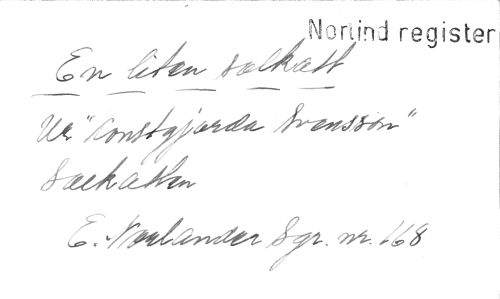 Norlind register
En liten solkatt
Ur "Konstgjorda Svensson"
Solkatten
E. Norlander Sgr. nr. 168